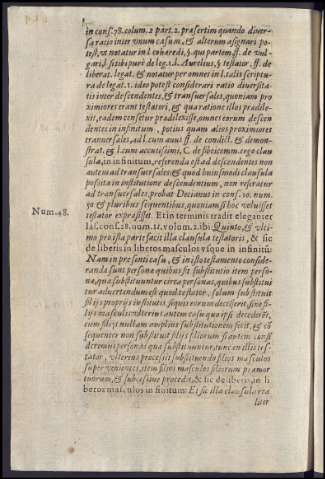 in cons. 78. colum. 2 part. 2. præsertim quando diver-
sa ratio inter vnum casum, & alterum assignari po-
test, vt notatur in l. coheredi, §. qui patrem, ff. de vul-
gari, l. si tibi pure de leg. 1. l. Aurelius, §. testator. ff. de
liberat. legat. & notatur per omnes in l. talis scriptu-
ra de legat. 1. ideo potest considerari ratio diversita-
tis inter descendentes, & transuersales, quoniam pro
ximiores erant testatori, & qua ratione illos prædile-
xit, eadem censetur prædilexisse, omnes eorum descen
dentes in infinitum, potius quam alios proximiores
transuersales, ad l. cum auus ff. de condict. & demon-
strat. & l. cum acutissimi, C. de fideicomm. ergo clau
sula, in infinitum, referenda est ad descendentes non
autem ad transuersales & quod huiusmodi clausula
posita in institutione descendentium, non referatur
ad transuersales, probat Decianus in cons. 10. num.
30 & pluribus sequentibus, quoniam si hoc voluisset
testator expraßisset. Et in terminis tradit eleganter
Num. 48. Ias. cons. 28. num. 11. volum. 2. ibi; Quinto, & vl-
timo pro ista parte facit illa clausula testatoris, & sic
de liberis in liberos masculos vsque in infinitū
Nam in præsenti casu, & in isto testamento conside-
randa sunt persona quibus fit substitutio item perso-
na, qua substituuntur circa personas, quibus substitui
tur aduertendum est quod testator, solum substituit
filijs proprijs institutis si qui eorum decesserit, sine fi-
lijs masculis vnde si autem casu quo ipsi decederēt,
cum filijs nullam amplius substitutionem fecit, & cō
sequenter non substituit filijs filiorum si autem con-
sideremus personas qua substituuntur, tunc cum illis tes-
tator, vlterius processit substituendo filios masculos
superviuentes, item filios masculos filiorum præmor
tuorum, & sub casibus procedit, & sic de liberis in li
beros masculos in finitum: Et sic illa clausula rta
liter